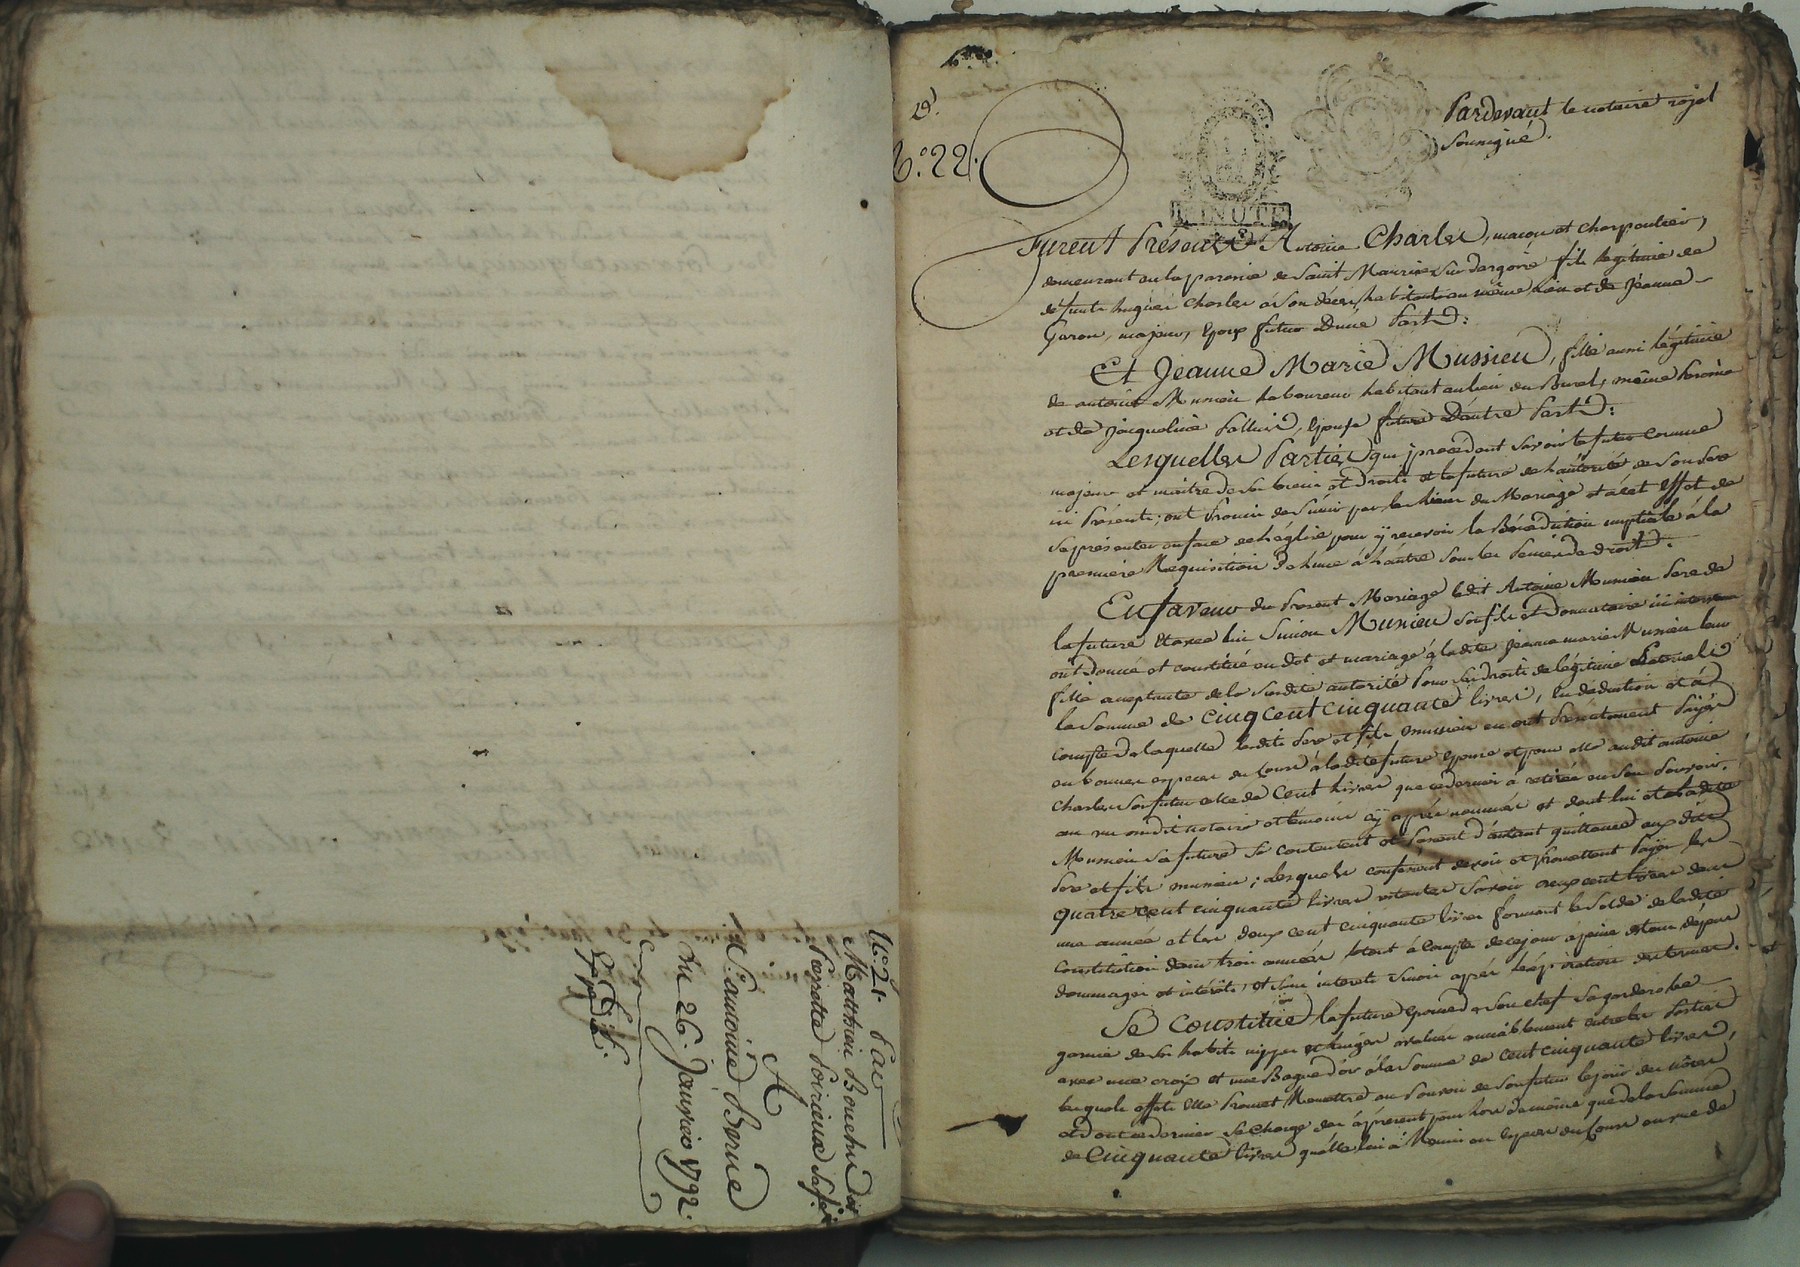 N.° 21. Par
Mathieu Bouchardon
Pierrette Poirieux sa fe.
A
Me. Camoine Borne
Du 26. Janvier 1792.
Expédié.
D.
N.° 22.
MINUTE
Pardevant le notaire royal
Soussigné.
Furent Présents Antoine Charles, maçon et charpentier,
demeurant en la paroisse de Saint Maurice sur dargoire fils légitime de
défunt hugues Charles à son décès habitant au même lieu et de Jeanne
Garon, majeur, Epoux futur D'une Part :
Et Jeanne Marie Mussieu, fille aussi légitime
de antoine Mussieu laboureur habitant au lieu du Buret, même Paroisse
et de Jacqueline Palluis, Epouse future D'autre Part :
Lesquelles Parties qui procédent savoir le futur comme
majeur et maitre de ses biens et droits et la future de l'autorité de Son Pere
ici Présent ; ont Promis de s'unir par les liens du Mariage et à cet Effet de
se présenter en face de l'église pour y recevoir la Bénédiction nuptiale à la
première Réquisition de l'une à l'autre Sous les Peines de droit.
En faveur du Présent Mariage ledit Antoine Mussieu Pere de
la future Et avec lui Simon Mussieu son fils et Donnataire ici intervenu
ont Donné et constitué en dot et mariage à ladite Jeanne marie Mussieu leur
fille acceptante de la Susdite autorité Pour ses droits de légitime Paternels
la Somme de Cinq cent cinquante livres, En déduction et à
compte de laquelle lesdits Pere et fils Mussieu en ont Présentement Payés
en bonnes especes du Cours à ladite future Epouse et pour elle audit antoine
Charles Son futur celle de Cent livres que ce dernier à retirée en Son Pouvoir,
au vu dudit notaire et témoins cy après nommés et dont lui et ladite
Mussieu sa future se contentent et Passent d'autant quittance aux dits
Pere et fils mussieu ; Lesquels confessent devoir et promettent Payer les
quatre cent cinquante livres restantes Savoir deux cent livres dans
une année et les deux cent cinquante livres formant le Solde de ladite
Constitution dans trois années le tout à Compte de ce jour a peine de tous dépens
dommages et intérêts, et sans intérets Sinon après l'expiration des termes.
Se Constitue la future Epouse de Son chef Sa garderobe
garnie de ses habits nippes et linges évalués amiablement entre les Parties
avec une croix et une Bague d'or à la Somme de cent cinquante livres,
lesquels effets Elle Promet Remettre au Pouvoir de Son futur le jour des nôces
et dont ce dernier se charge dès à présent pour lors de même que de la Somme
de Cinquante livres qu'elle lui à Remis en Especes du Cours au vu de